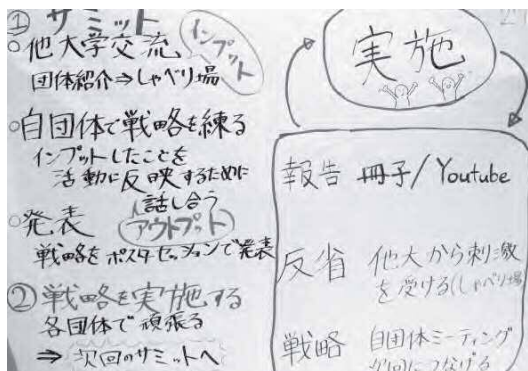 ① サミット
○他大学交流 インプット
団体紹介⇒しゃべり場
○自団体で戦略を練る
インプットしたことを
活動に反映するために
話し合う
○発表 アウトプット
戦略をポスターセッションで発表
②戦略を実施する
各団体で頑張る
⇒次回のサミットへ
実施
報告 冊子/Youtube
反省 他大から刺激
を受ける(しゃべり場)
戦略 自団体ミーティング
次回につなげる